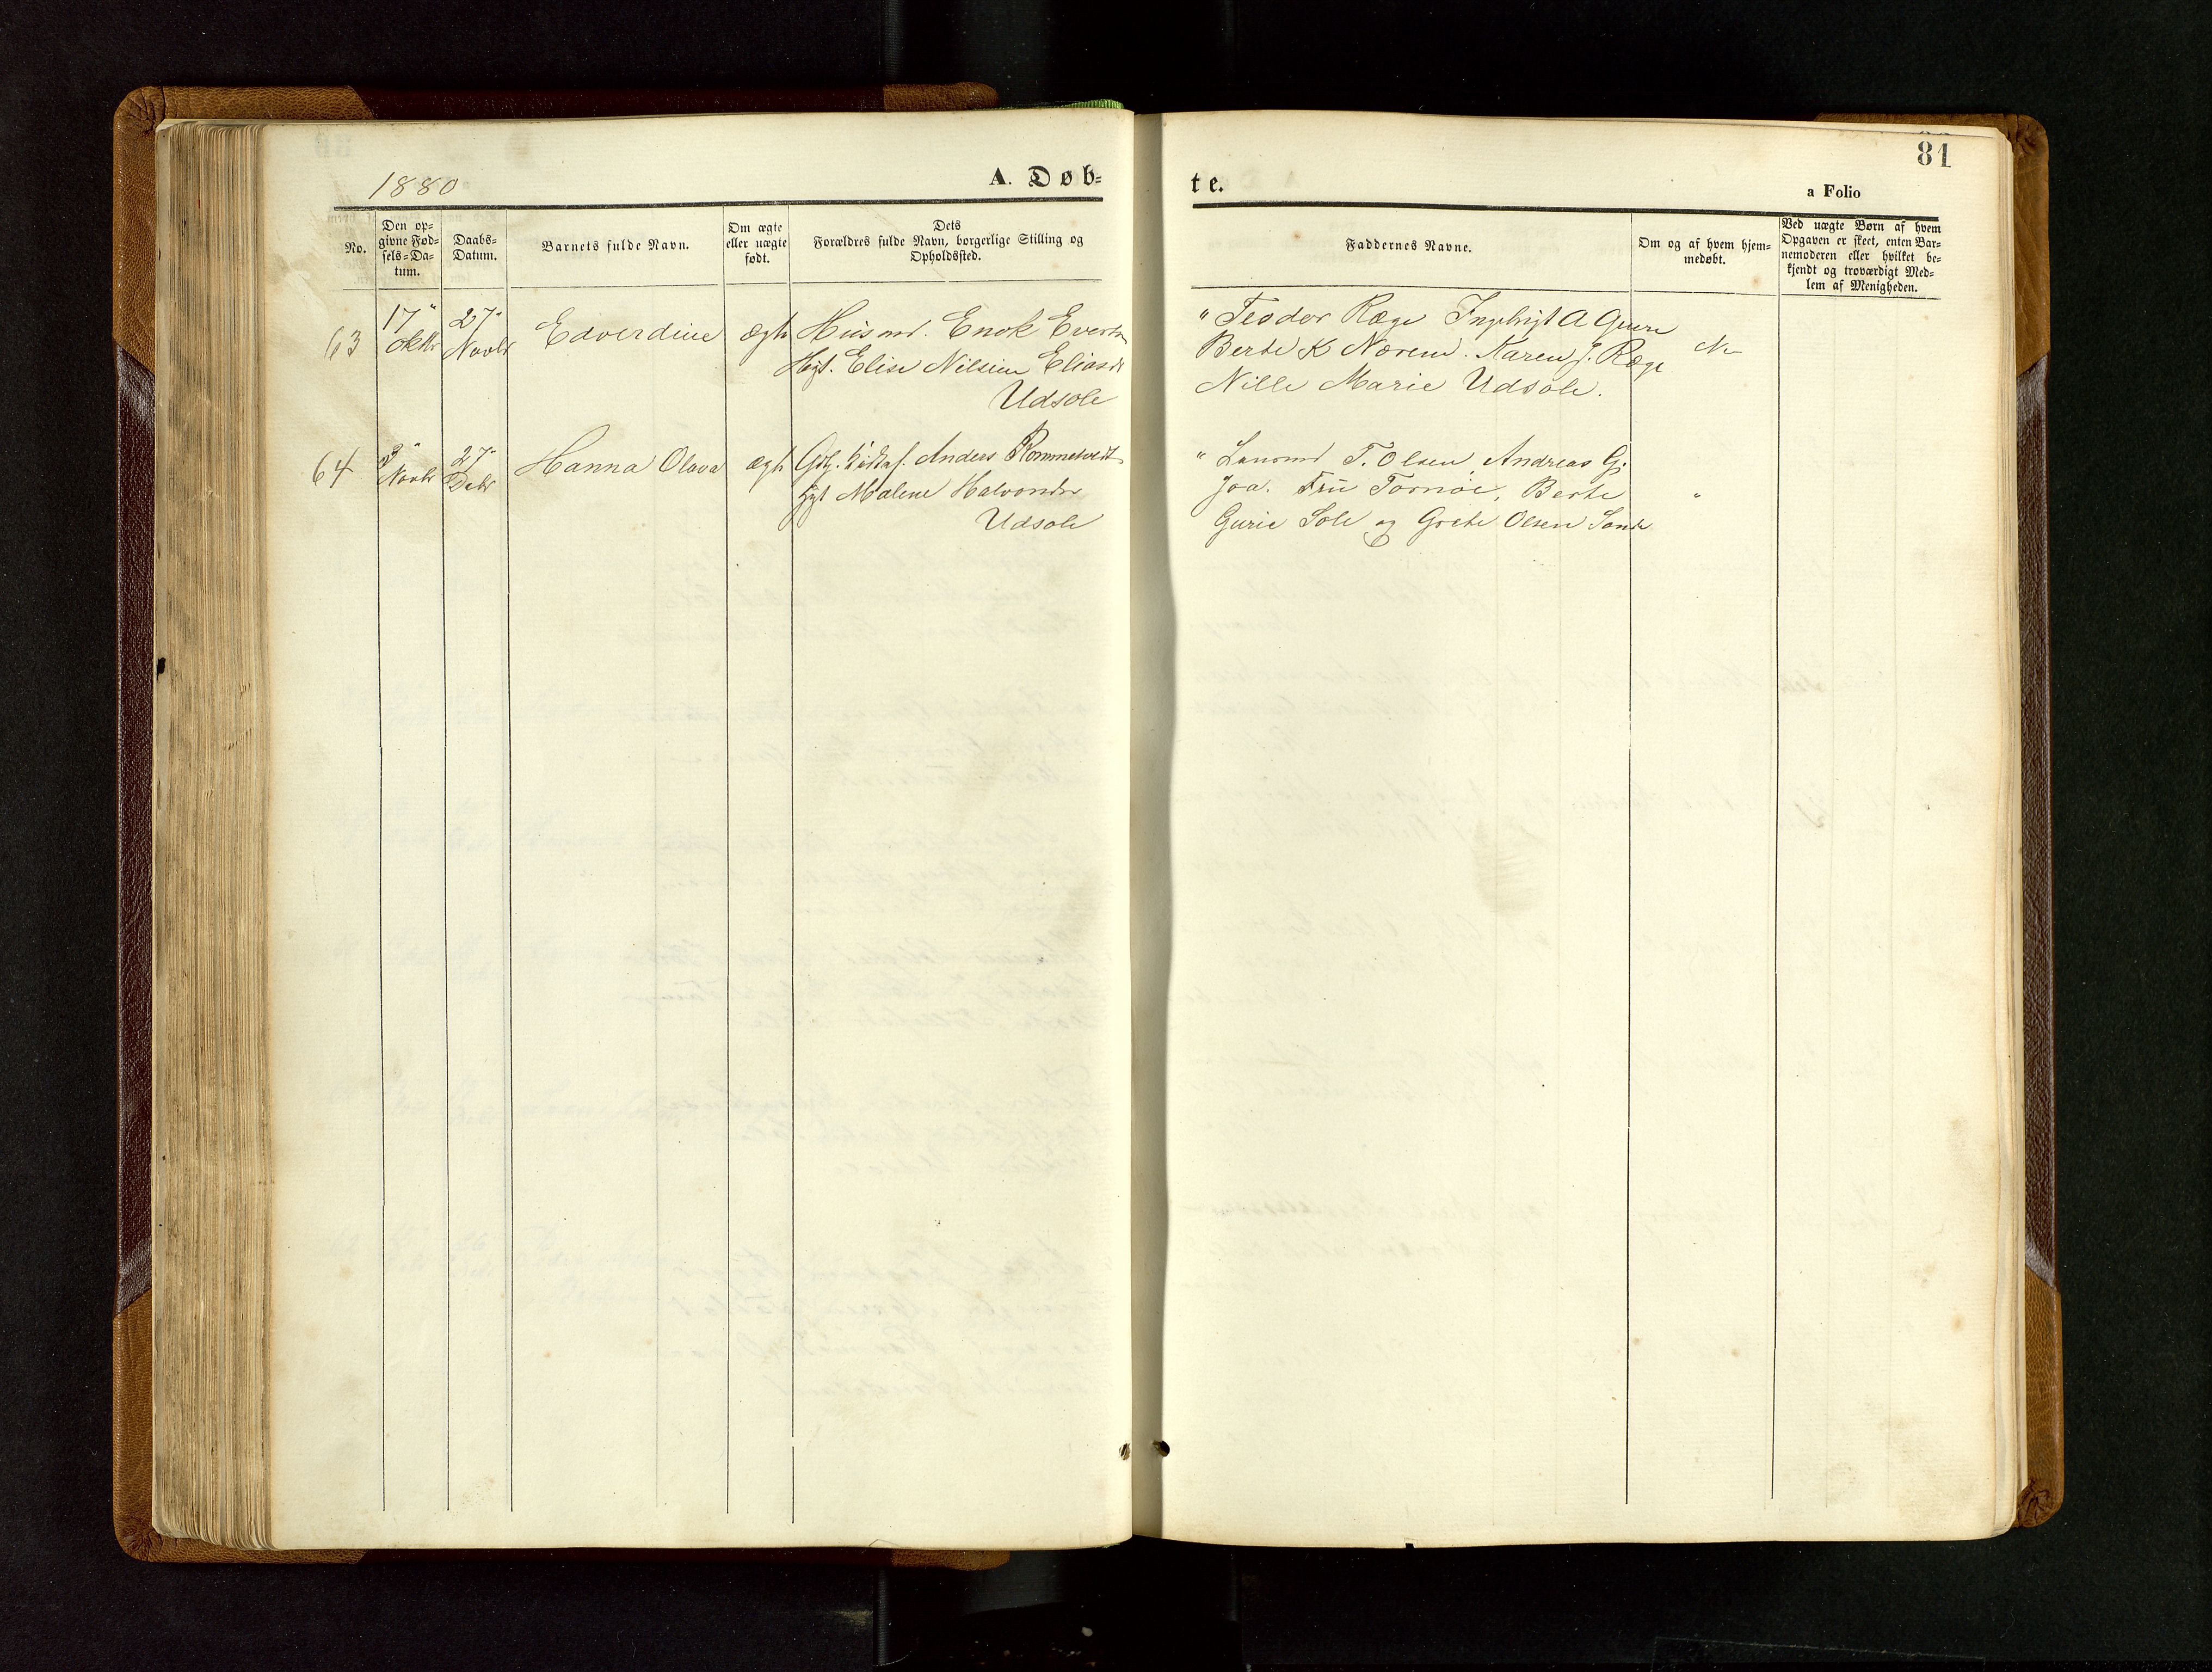 81
1880
A. Døb-
te.
a Folio
No.
Den op-
givne Fød-
sels-Da-
tum.
Daabs-
Datum.
Barnets fulde Navn.
Om ægte
eller uægte
født.
Dets
Forældres fulde Navn, borgerlige Stilling og
Opholdssted.
Faddernes Navne.
Om og af hvem hjem-
medøbt.
Ved uægte Børn af hvem
Opgaven er skeet, enten Bar-
nemoderen eller hvilket be-
kjendt og troværdigt Med-
lem af Menigheden.
63
17"
Oktbr
27"
Novbr
Edverdine
ægte
Husmd. Enok Everts
Hgt. Elise Nilsine Eliasd
Udsole
" Teodor Ræge Ingebrigt A
Berte K Nærem. Karen J. Ræge
Nille Marie Udsole.
64
3"
Novbr
27"
Debr
Hanna Olava
ægte
Anders Rommetvedt
Malene Halvorsdr
Udsole
" Lensmd T. Olsen, Andreas G.
Joa. Fru Tornøe, Berte
Gurie Sole og Grete Olsen Sande
"